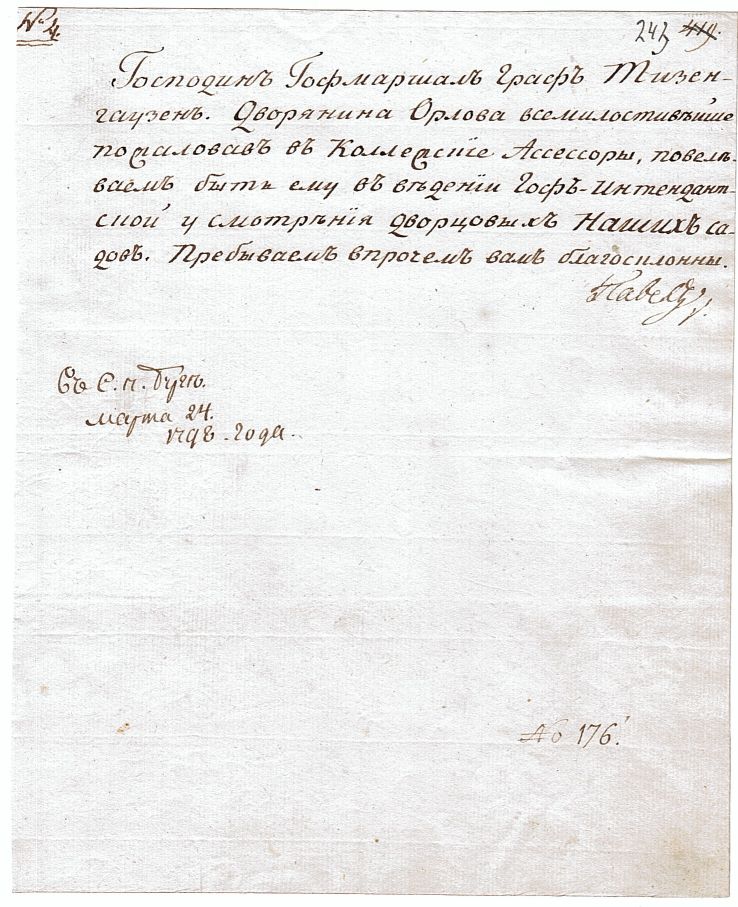 № 4.
243 419.
Господинъ Гофмаршалъ Графъ Тизен-
гаузенъ. Дворянина Орлова всемилостивѣйше
пожаловавъ въ Коллежскіе Ассессоры, повелѣ-
ваемъ быть ему въ вѣденіи Гофъ-Интендант-
ской у смотрѣнія дворцовыхъ Нашихъ са-
довъ. Пребываемъ впрочемъ вамъ благосклонны.
Павелъ
Въ С. п. Бугѣ.
марта 24.
года.
No 176.